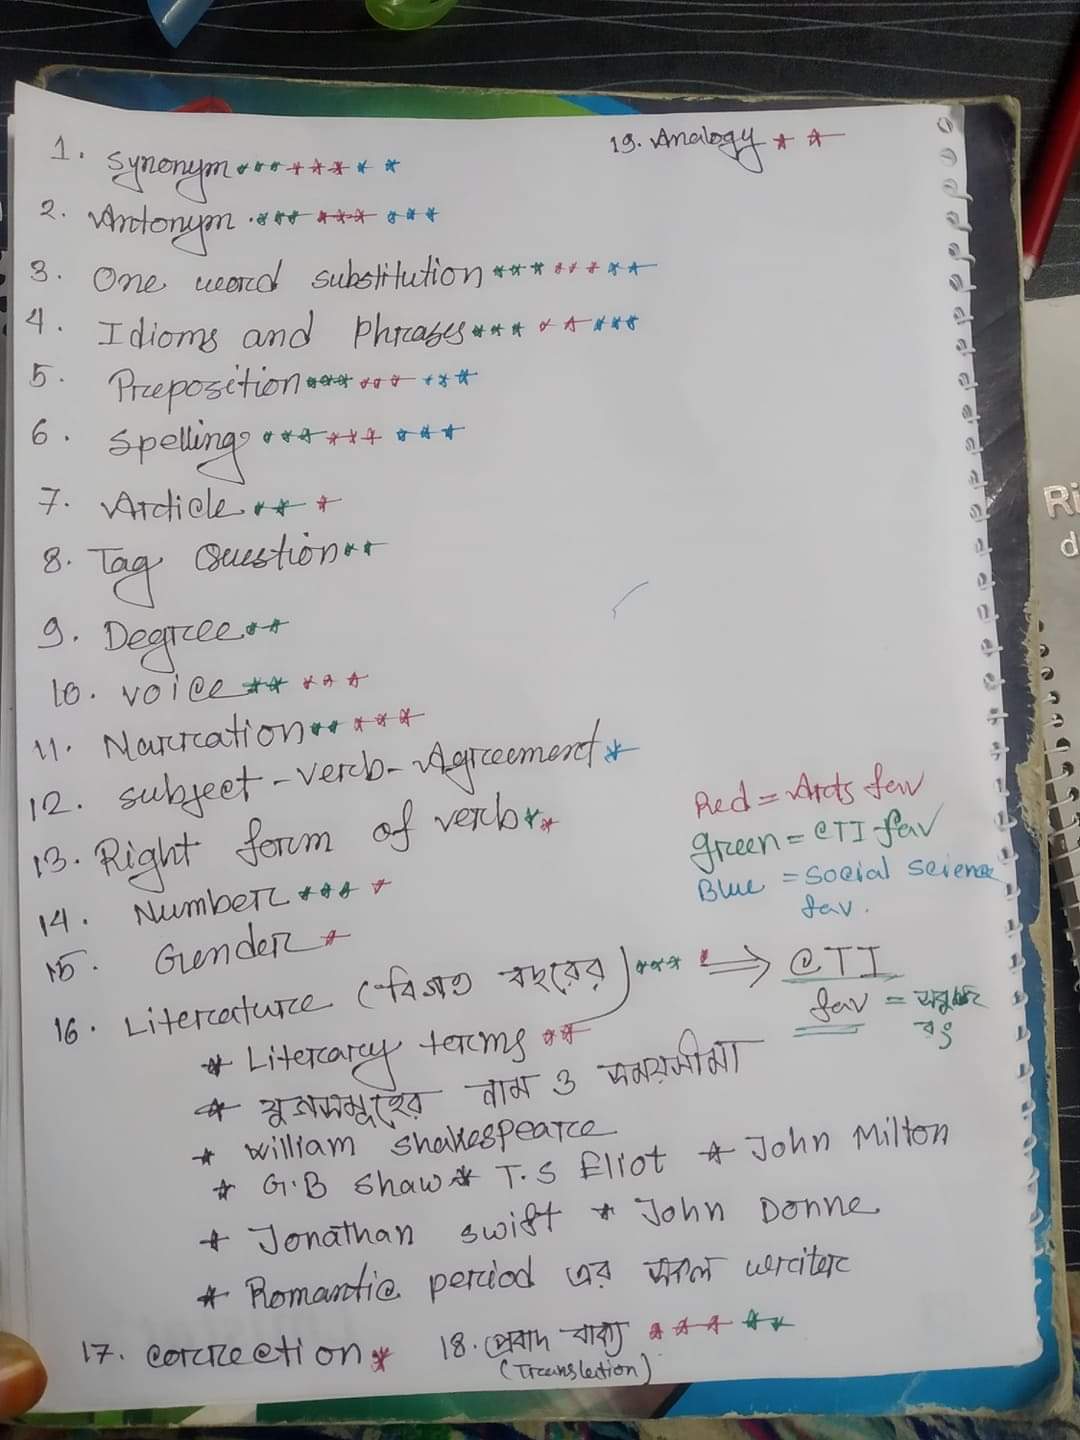 1. Synonym *** *** **
19. Analogy **
2. Antonym *** *** ***
3. One word substitution *** *** **
4. Idioms and Phrases *** ** ***
5. Preposition *** *** ***
6. Spelling *** *** ***
7. Article ** *
8. Tag Question **
9. Degree **
10. voice ** ***
11. Narration ** ***
12. subject-verb-Agreement *
13. Right form of verb **
14. Number *** *
15. Gender *
16. Literature (বিগত বছরের) *** * ⇒ CTI
fav = সবুজ রং
* Literary terms **
* যুগসমূহের নাম ও সময়সীমা
* William Shakespeare
* G.B Shaw * T.S Eliot * John Milton
* Jonathan swift * John Donne
* Romantic period এর সকল writer
17. correction *
18. প্রবাদ বাক্য *** **
(Translation)
Red = Arts fav
green = CTI fav
Blue = social science
fav.
Ri
d